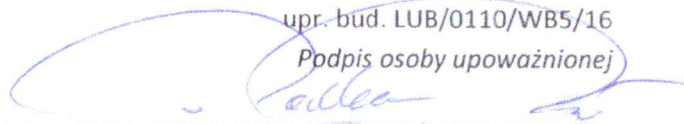 upr. bud. LUB/0110/WB5/16
Podpis osoby upoważnionej